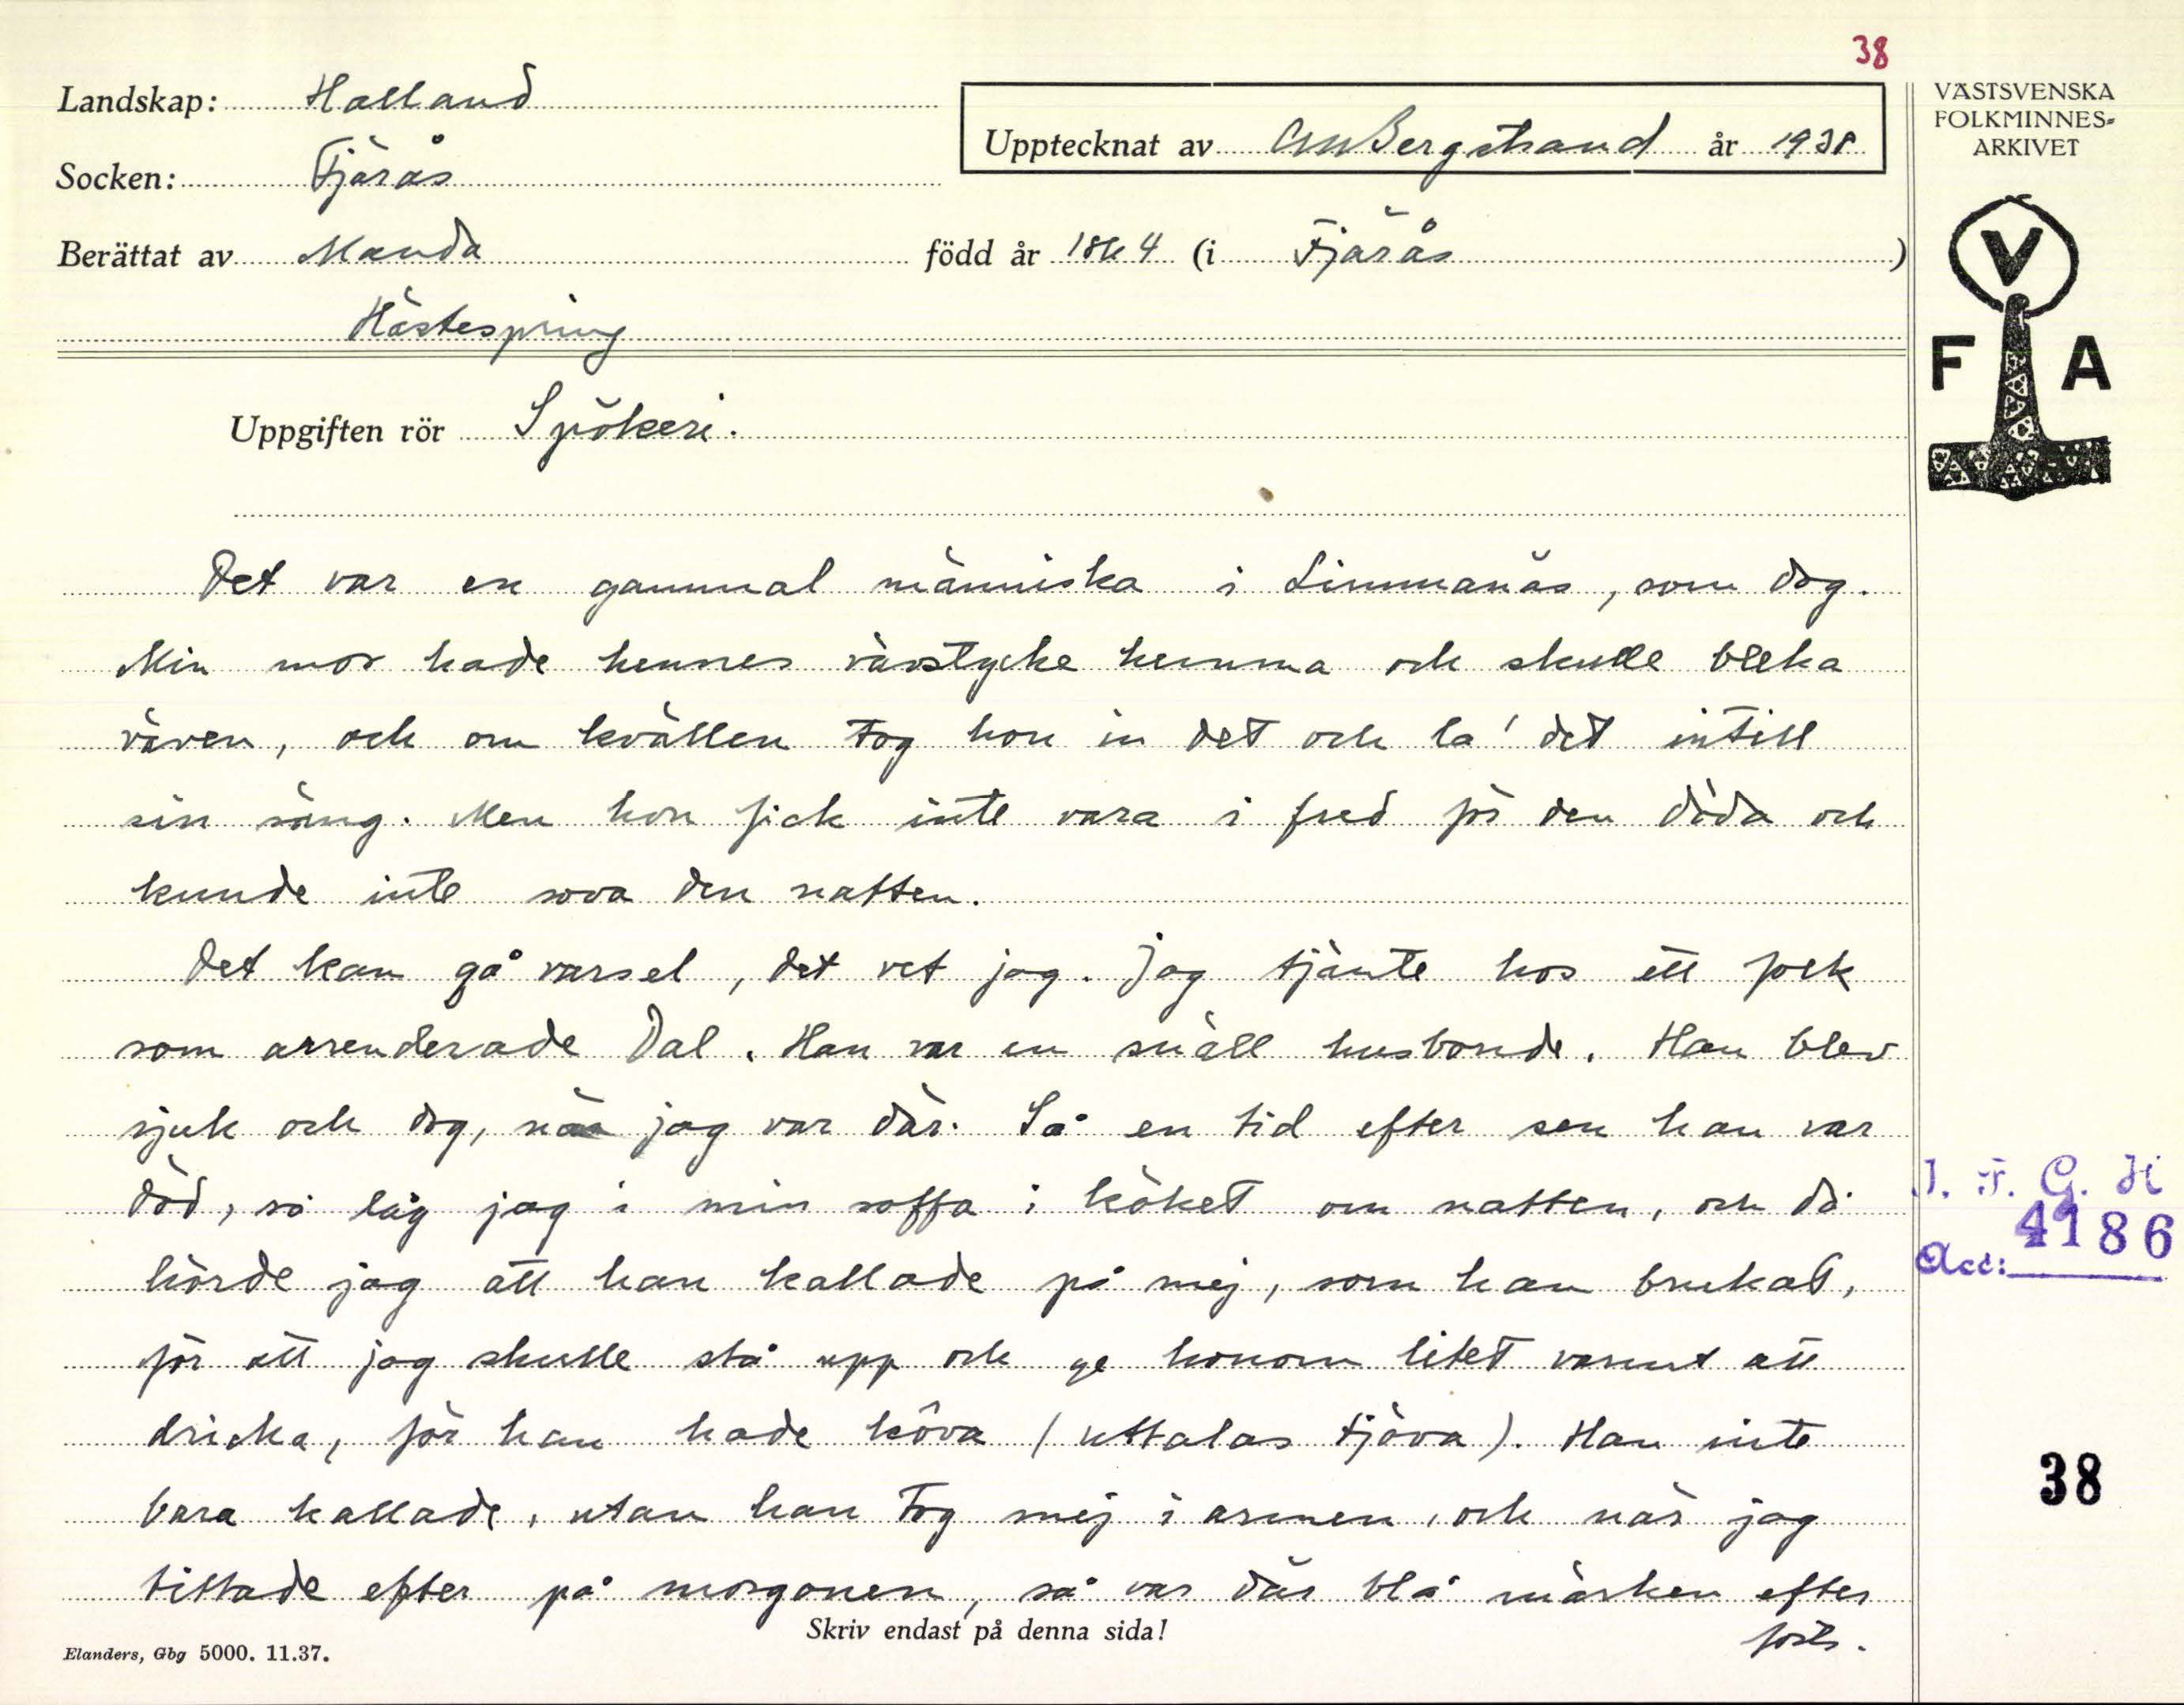 38
Landskap: Halland
Upptecknat av CMBergstrand år 1938
VÄSTSVENSKA
FOLKMINNES-
ARKIVET
Socken: Fjärås
Berättat av Manda född år 1864 (i Fjärås)
Hästespring
V
F A
Uppgiften rör Spökeri.
Det var en gammal människa i Limmanäs, som dog.
Min mor hade hennes vävstycke hemma och skulle bleka
väven, och om kvällen tog hon in det och la' det intill
sin säng. Men hon fick inte vara i fred för den döda och
kunde inte sova den natten.
Det kan gå varsel, det vet jag. Jag tjänte hos ett folk
som arrenderade Dal. Han var en snäll husbonde. Han blev
sjuk och dog, när jag var där. Så en tid efter sen han var
död, så låg jag i min soffa i köket om natten, och då
hörde jag att han kallade på mej, som han brukat,
för att jag skulle stå upp och ge honom litet varmt att
dricka, för han hade köva (uttalas tjöva). Han inte
bara kallade, utan han tog mej i armen, och när jag
tittade efter på morgonen, så var där blå märken efter
forts.
Skriv endast på denna sida!
Elanders, Gbg 5000. 11.37.
I. F. G. H
4186
Acc:
38